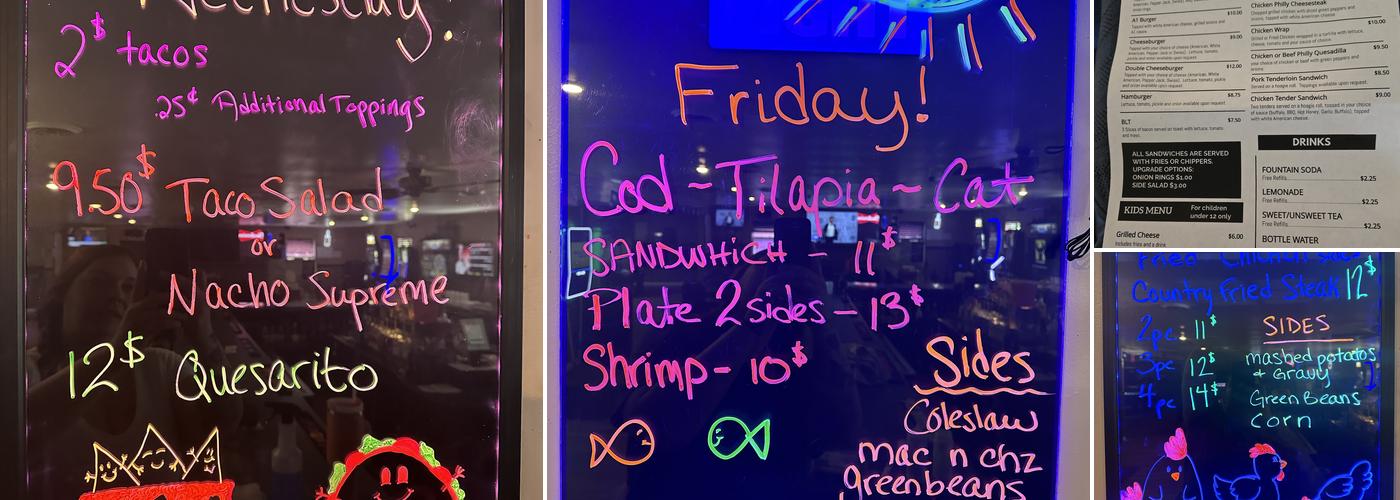 Wednesday!
2$ tacos
.25¢ Additional Toppings
9.50$ Taco Salad
or
Nacho Supreme
12$ Quesarito
Friday!
Cod ~ Tilapia ~ Cat
SANDWHICH - 11$
Plate 2 sides - 13$
Shrimp - 10$
Sides
Coleslaw
mac n chz
greenbeans
A1 Burger $10.00
Topped with white American cheese, grilled onions and
A1 sauce
Cheeseburger $9.00
Topped with your choice of cheese (American, White
American, Pepper Jack, Swiss). Lettuce, tomato, pickle
and onion available upon request
Double Cheeseburger $12.00
Topped with your choice of cheese (American, White
American, Pepper Jack, Swiss). Lettuce, tomato, pickle
and onion available upon request
Hamburger $8.75
Lettuce, tomato, pickle and onion available upon request
BLT $7.50
3 Slices of bacon served on toast with lettuce, tomato
and mayo.
ALL SANDWICHES ARE SERVED
WITH FRIES OR CHIPPERS.
UPGRADE OPTIONS:
ONION RINGS $1.00
SIDE SALAD $3.00
KIDS MENU For children
under 12 only
Grilled Cheese $6.00
Includes fries and a drink
Chicken Philly Cheesesteak
Chopped grilled chicken with sliced green peppers and
onions, topped with white American cheese
$10.00
Chicken Wrap
Grilled or Fried Chicken wrapped in a tortilla with lettuce,
cheese, tomato and your choice of sauce.
$9.50
Chicken or Beef Philly Quesadilla
your choice of chicken or beef with green peppers and
onions
$8.50
Pork Tenderloin Sandwich
Served on a hoagie roll. Toppings available upon request.
$9.00
Chicken Tender Sandwich
Two tenders served on a hoagie roll, tossed in your choice
of sauce (Buffalo, BBQ, Hot Honey, Garlic Buffalo), topped
with white American cheese.
DRINKS
FOUNTAIN SODA
Free Refills $2.25
LEMONADE
Free Refills $2.25
SWEET/UNSWEET TEA
Free Refills $2.25
BOTTLE WATER
Fried Chicken
Country Fried Steak 12$
2pc 11$
3pc 12$
4pc 14$
SIDES
mashed potatos
& Gravy
Green Beans
Corn